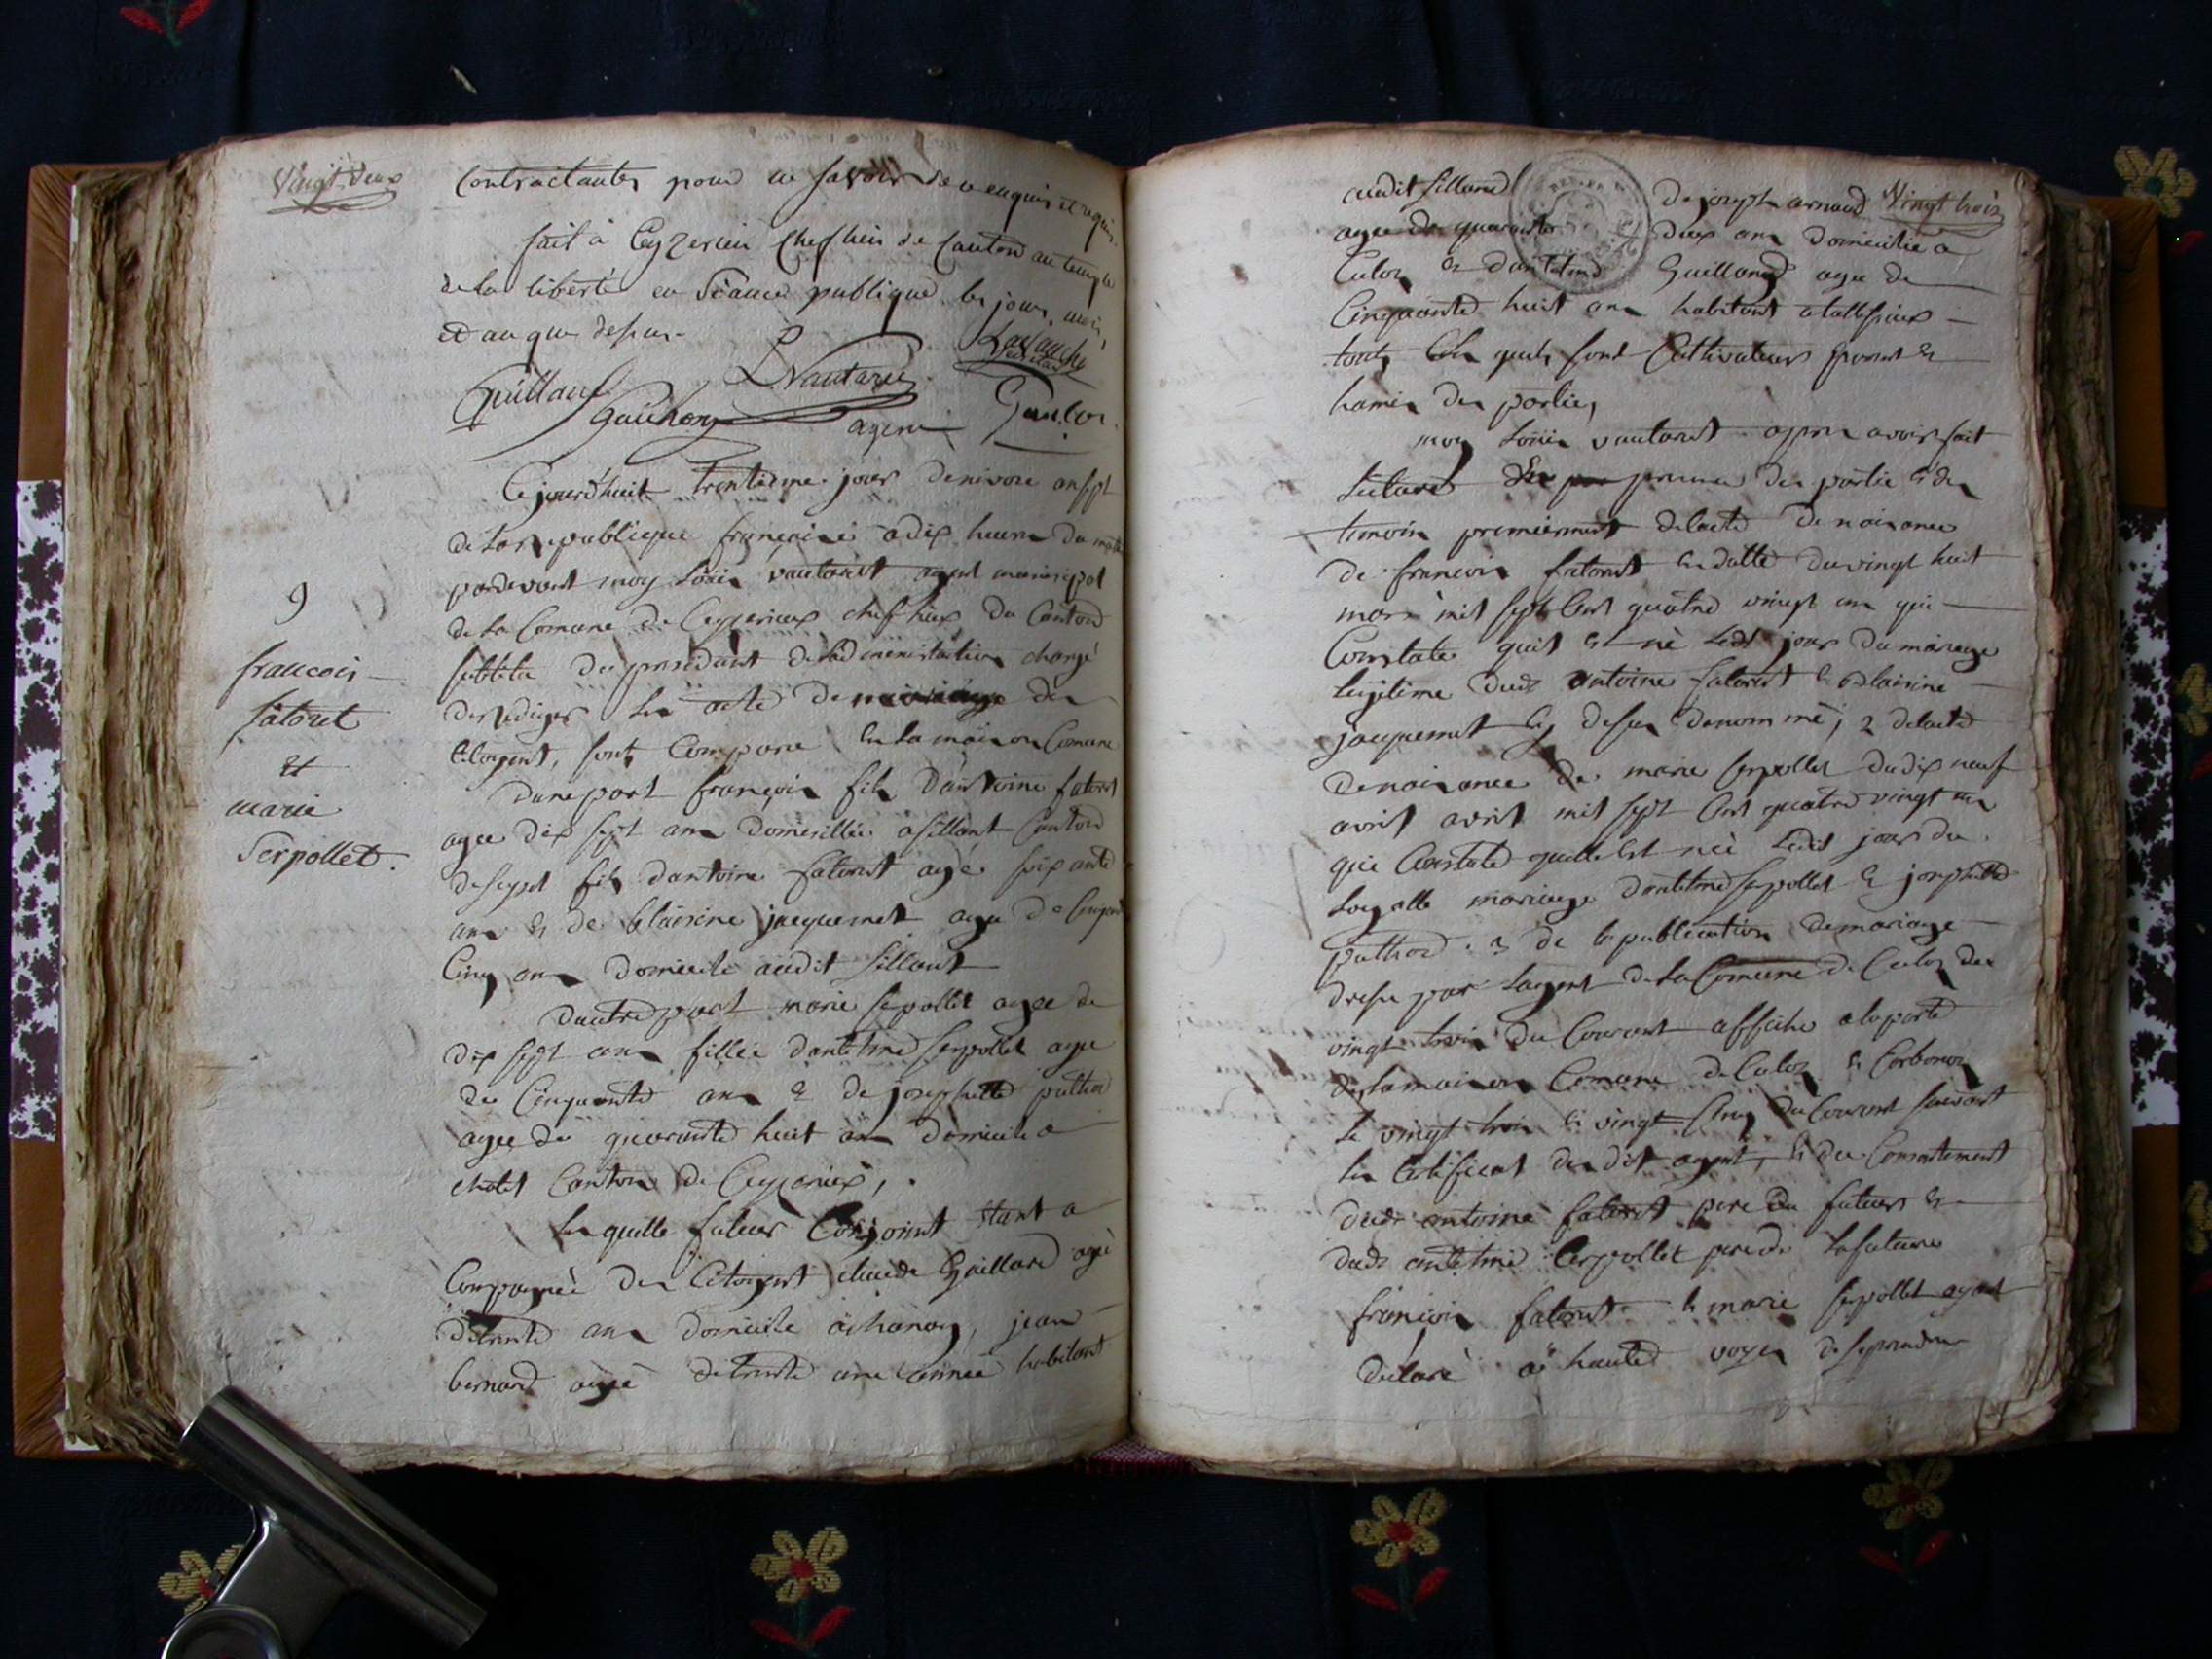 Vingt deux
contractantes pour ce savoir
fait à Ceyzerieu chef lieu de Canton au temple
de la liberté en Séance publique les jours, mois,
et an que dessus.
LVautaret
Guillaud
agent
Cejourdhuit trentieme jour de nivose an sept
de la republique francaise a dix heure du
pardevant moy Loüis vautaret agent municipal
de la Comune de Ceyzerieux chef lieux du Canton
du president de ladmenistration chargé
de rediger les acte de mariage des
Citoyent, sont Compare en la maison Comune
9
francois
fatoret
et
marie
Serpollet.
dune part françois fils dantoine fatoret
agee dix sept ans domicillie a sillant Canton
fils dantoine fatoret agé soixante
ans et de jacquemet agee de
Cinq ans domicile audit sillant
dautre part marie serpollet agee de
dix sept ans fillie dantelme serpollet agee
de Cinquante ans & de josephette
agee de quarante huit ans domicile a
Canton de Ceyzerieux,
les quelle futeur Conjoint
Compagnée des Citoyent claude Guillard agé
de trente ans domicile a chanay, jean
bernard agé de trente une année habitant
Vingt trois
audit sillant de joseph arnaud
agee de quarante deux ans domicilié a
Culoz & dantelme Guilland agee de
Cinquante huit ans habitant a
touts les quels sont Cultivateurs parent &
hamis des parties,
moy Loüis vautaret apres avoir fait
Lecture en presence des partie & des
temoin premierement de lacte de naisance
de francois fatoret en datte du vingt huit
mars mil sept Cent quatre vingt un qui
Constate quil est né Ledt jour du mariage
Legitime dudt antoine fatoret &
jacquemet cy desus denommé; 2 de lacte
de naisance de marie serpollet du dix neuf
avril avril mil sept Cent quatre vingt un
qui Constate quelle est néé Ledit jour du
Loyalle mariage dantelme serpollet & josephette
3 de la publication de mariage
dresse par Lagent de la Comune de Culoz du
vingt trois du Courant affiche a la porte
de la maison Comune de Culoz & Corbonoz
le vingt trois & vingt Cinq du Courant suivant
les Certificat des dit agent, & du Consentement
dudt antoine fatoret pere du futeur &
dudt antelme Cerpollet pere de la future
françois fatoret & marie serpollet ayant
declaré a haute voye de se prendre